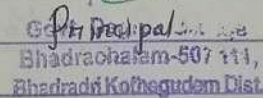 Principal
Bhadrachalam-507 111,
Bhadradri Kothagudem Dist.